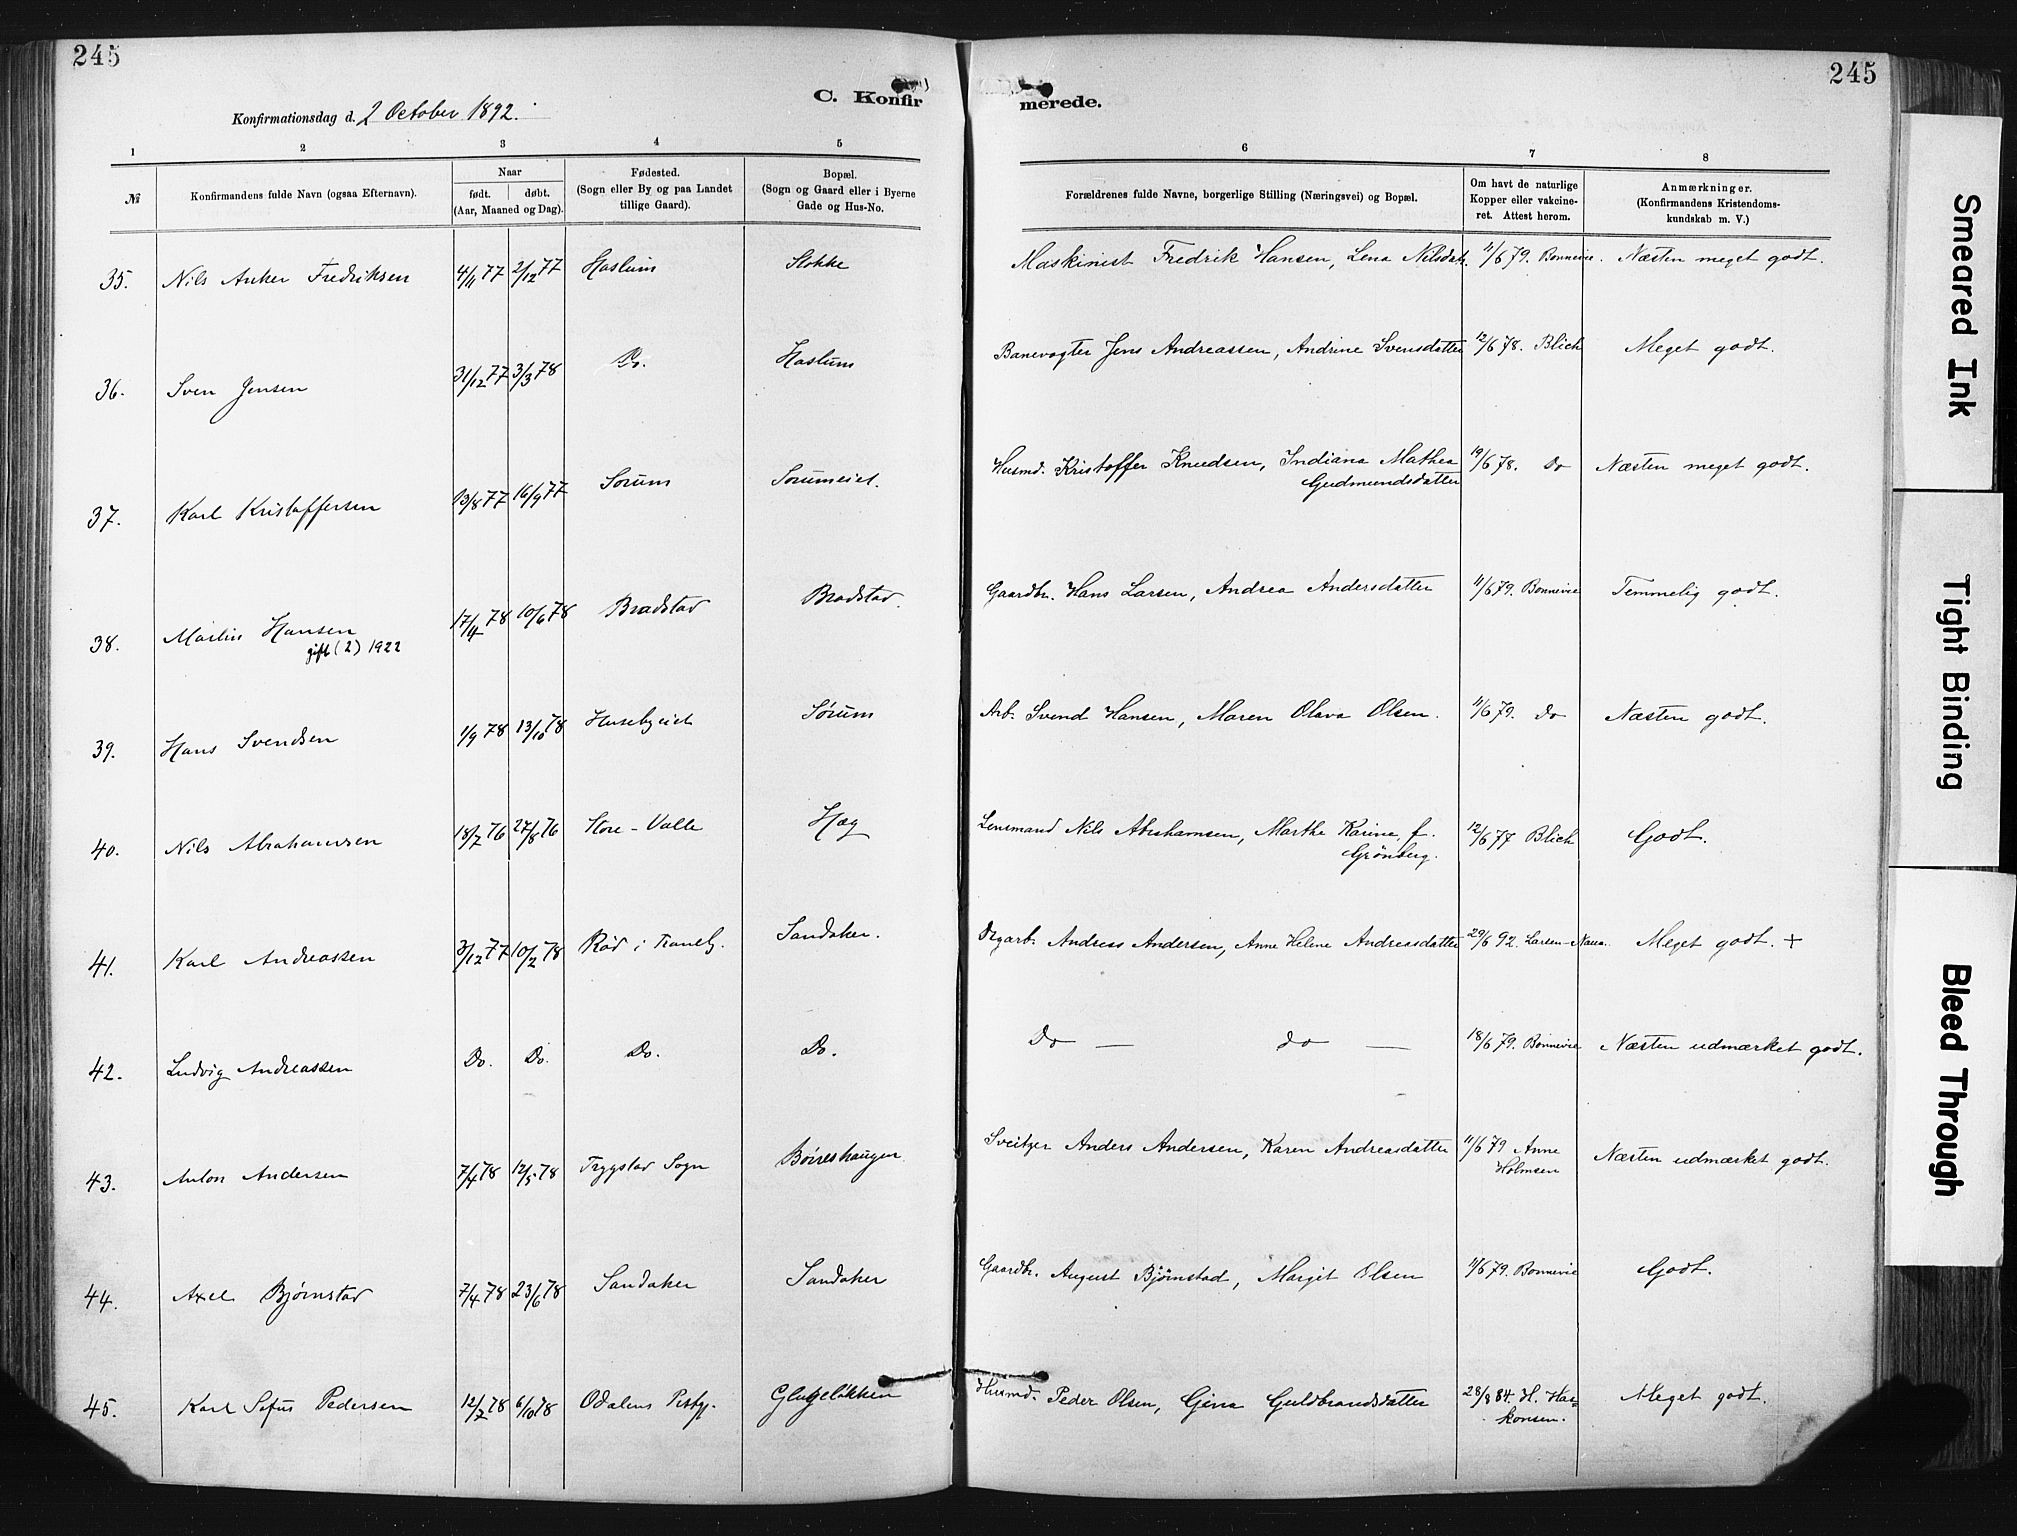 245
245
C. Konfir
merede.
Konfirmationsdag d. 2 October 1892.
1 2 3 4 5 6 7 8
№ Konfirmandens fulde Navn (ogsaa Efternavn). Naar født. døbt. (Aar, Maaned og Dag). Fødested. (Sogn eller By og paa Landet tillige Gaard). Bopæl. (Sogn og Gaard eller i Byerne Gade og Hus-No. Forældrenes fulde Navne, borgerlige Stilling (Næringsvei) og Bopæl. Om havt de naturlige Kopper eller vakcineret. Attest herom. Anmærkninger. (Konfirmandens Kristendomskundskab m. V.)
35. Nils Anker Fredriksen 4/11 77 2/12 77 Haslum Stokke Maskinist Fredrik Hansen, Lena Nilsdatt. 11/6 79. Bonnevie. Næsten meget godt.
36. Sven Jensen 31/12 77 3/3 78 Do. Haslum Banevogter Jens Andreassen, Andrine Svensdatter 12/6 78. Blich Meget godt.
37. Karl Kristoffersen 13/8 77 16/9 77 Sorum Sorumeiet. Husmd. Kristoffer Knudsen, Indiana Mathea Gudmundsdatter 19/6 78. do Næsten meget godt.
38. Martin Hansen 17/4 78 10/6 78 Bradstad Bradstad. Gaardbr. Hans Larsen, Andrea Andersdatter 11/6 79. Bonnevie Temmelig godt.
gift (2) 1922
39. Hans Svendsen 1/9 78 13/10 78 Husebyeiet Sørum Arb. Svend Hansen, Maren Olava Olsen. 11/6 79. do Næsten godt.
40. Nils Abrahamsen 18/7 76 27/8 76 Store-Valle Hæg Lensmand Nils Abrahamsen, Marthe Karine, f. Grönberg. 12/6 77 Blich Godt.
41. Karl Andreassen 3/12 77 10/2 78 Röd i Tranebg. Sandaker. Dgarb. Andreas Andersen, Anne Helene Andreasdatter 29/6 92. Larsen-Naur. Meget godt. +
42. Ludvig Andreassen Do. Do. Do. Do. Do — do — 18/6 79. Bonnevie Næsten udmærket godt.
43. Anton Andersen 7/4 78 12/5 78 Trygstad Sogn Böireshaugen. Sveitzer Anders Andersen, Karen Andreasdatter 11/6 79 Anne Holmsen Næsten udmærket godt.
44. Axel Bjørnstad 7/4 78 23/6 78 Sandaker Sandaker Gaardbr. August Bjørnstad, Margit Olsen 11/6 79. Bonnevie Godt.
45. Karl Sefus Pedersen 12/7 78 6/10 78 Odalens Prstgj. Husmd. Peder Olsen, Gina Guldbrandsdatter 28/8 84. H. Haakonsen. Meget godt.
Smeared Ink
Tight Binding
Bleed Through